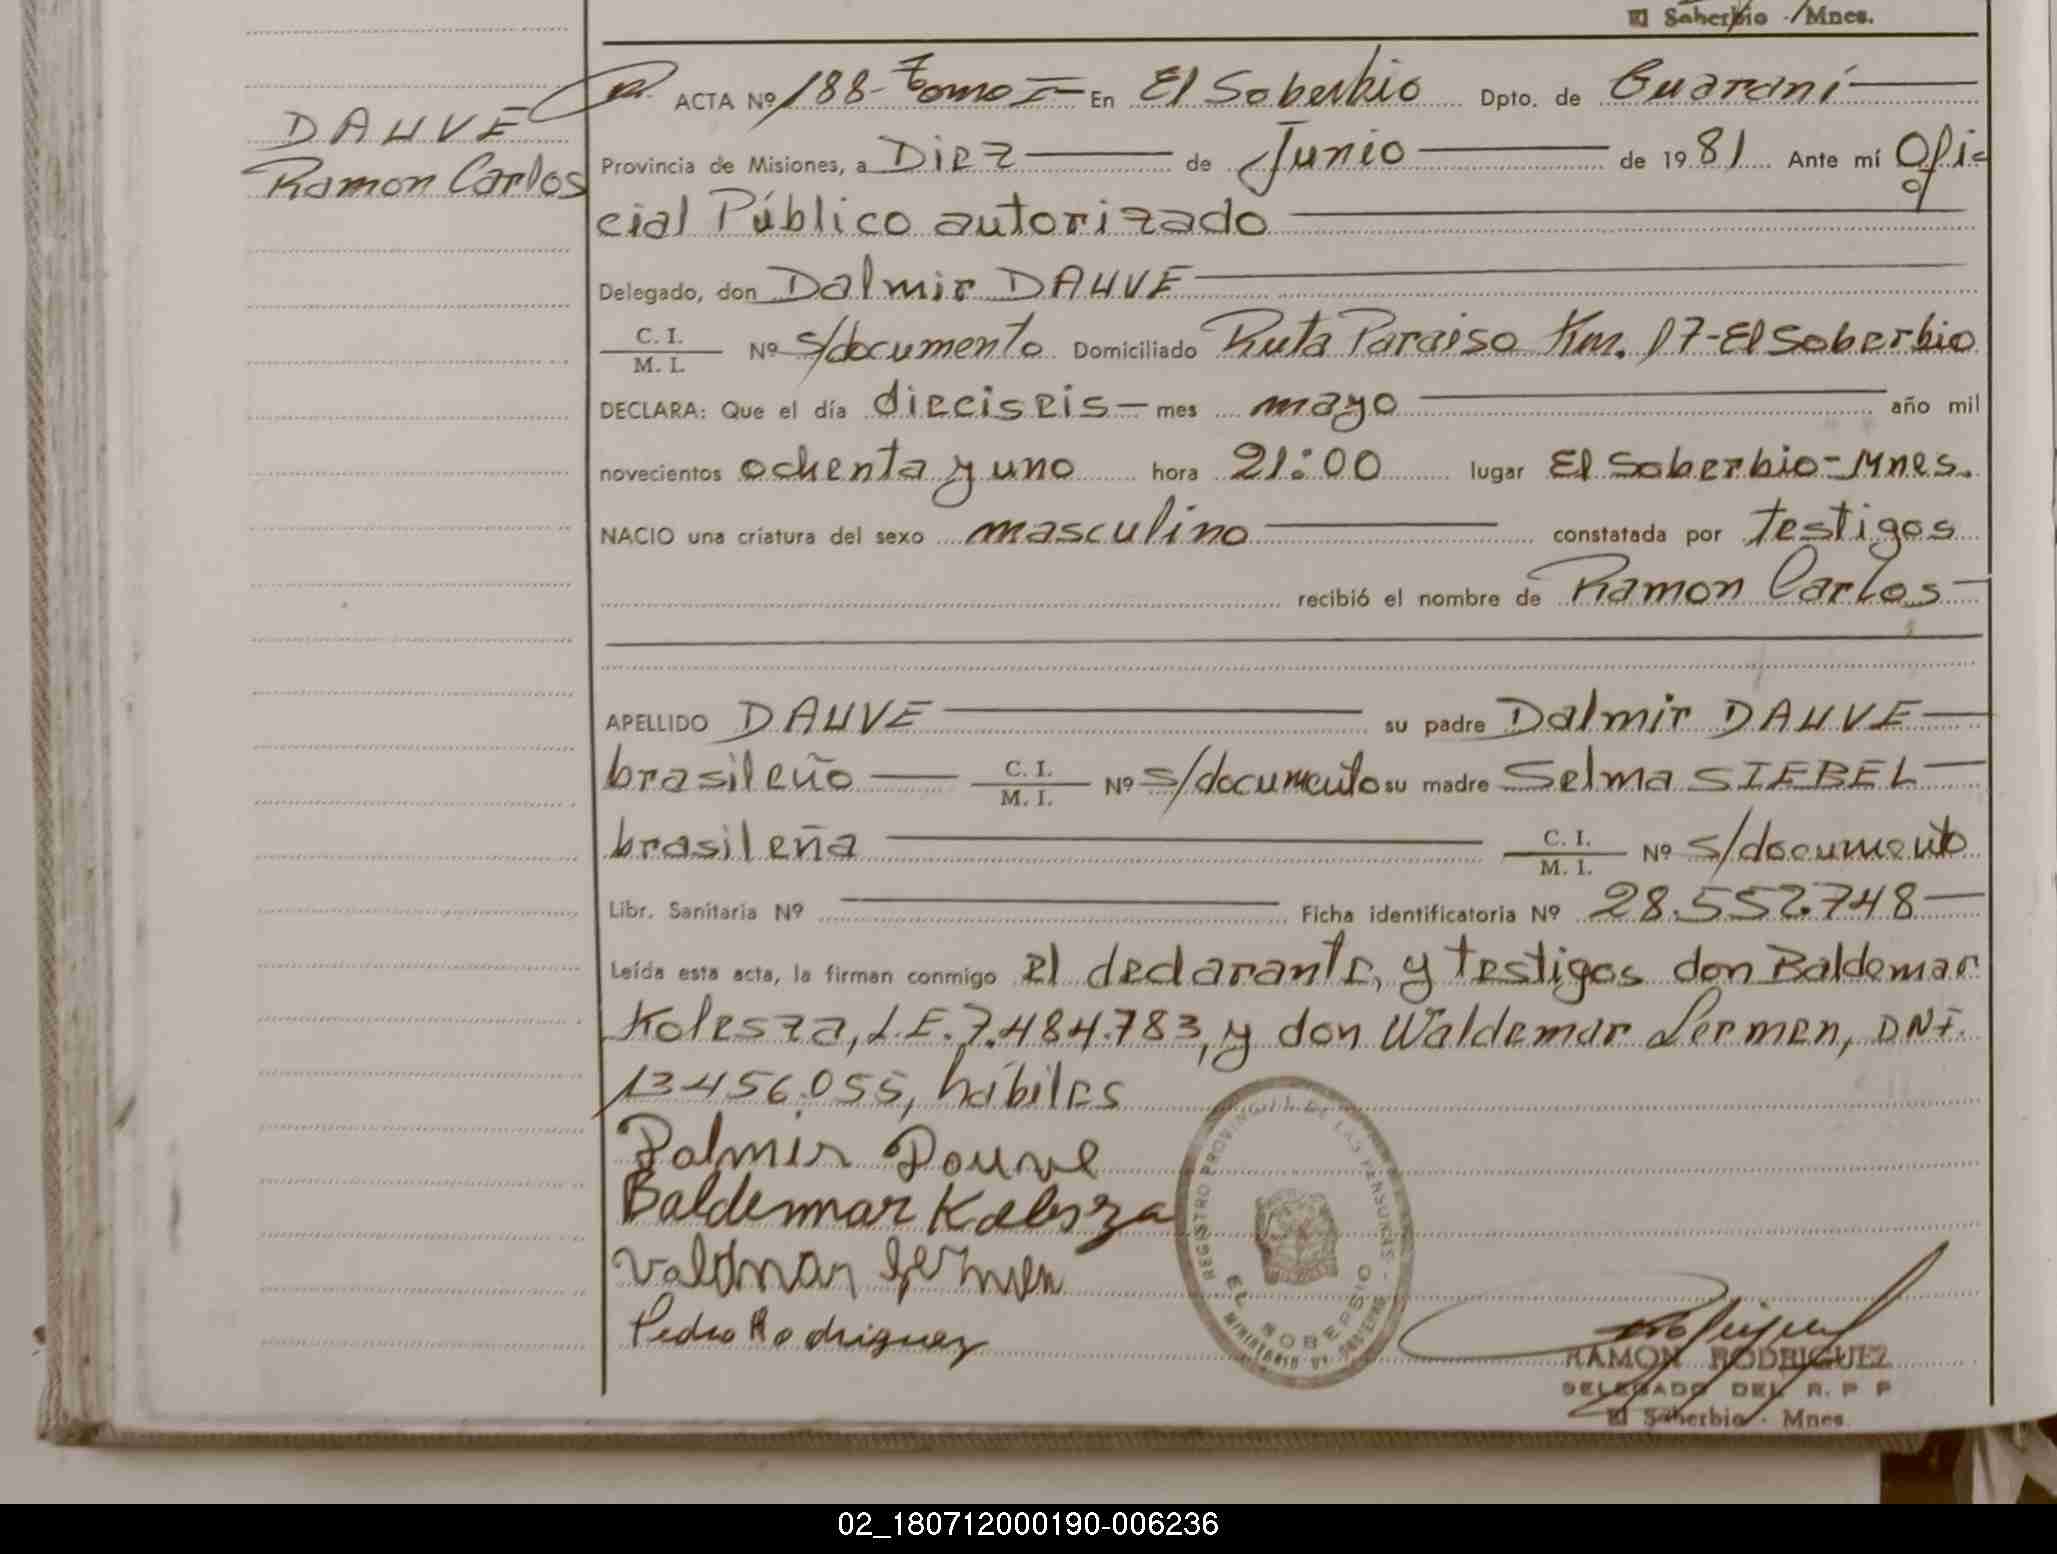 El Soberbio - Mnes.
ACTA Nº 188- Tomo I En El Soberbio Dpto. de Guaraní
DAUVE
Ramon Carlos
Provincia de Misiones, a Diez de Junio de 1981 Ante mí Ofi-
cial Público autorizado
Delegado, don Dalmir DAUVE
C. I.
M. I.
Nº s/documento Domiciliado Ruta Paraiso Km. 17-El Soberbio
DECLARA: Que el día dieciseis mes mayo año mil
novecientos ochenta y uno hora 21:00 lugar El Soberbio-Mnes.
NACIO una criatura del sexo masculino constatada por testigos
recibió el nombre de Ramon Carlos
APELLIDO DAUVE su padre Dalmir DAUVE
brasileño C. I. M. I. Nº s/documento su madre Selma SIEBEL
brasileña C. I. M. I. Nº s/documento
Libr. Sanitaria Nº Ficha identificatoria Nº 28.552.748
Leída esta acta, la firman conmigo el declarante, y testigos don Baldemar
Kolesza, L.E. 7.484.783, y don Waldemar Lermen, DNI.
13456.055, hábiles
Dalmir Dauve
Baldemar Kolesza
Valdmar Lermen
Pedro Rodriguez
REGISTRO PROVINCIAL DE LAS PERSONAS
EL SOBERBIO
MINISTERIO DE GOBIERNO
RAMON RODRIGUEZ
DELEGADO DEL R. P. P
El Soberbio - Mnes.
02_180712000190-006236